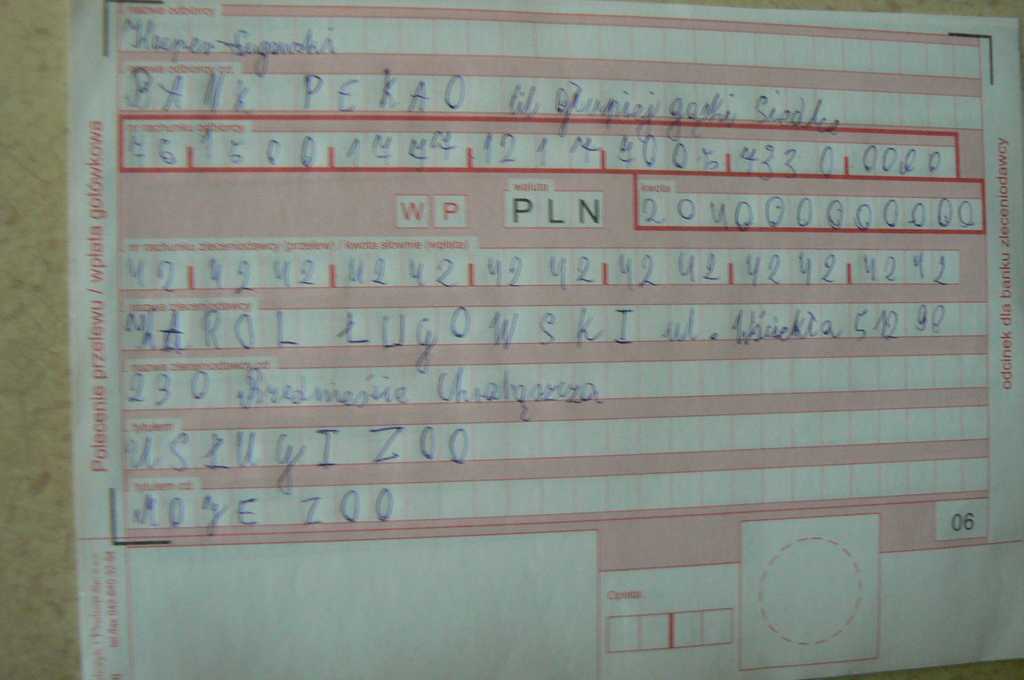 nazwa odbiorcy
Kacper Ługowski
nazwa odbiorcy cd.
BANK PEKAO ul głupiej gąski Siedlce
nr rachunku odbiorcy
1500 1777 1217 7005 4330 0000
WP
waluta
PLN
kwota
204000000000
nr rachunku zleceniodawcy (przelew) / kwota słownie (wpłata)
42 4242 4242 4242 4242 4242 4242
nazwa zleceniodawcy
KAROL ŁUGOWSKI ul. Wściekła 5
nazwa zleceniodawcy cd.
230
tytułem
USŁUGI ZOO
tytułem cd.
MOJE ZOO
06
Opłata
Polecenie przelewu / wpłata gotówkowa
odcinek dla banku zleceniodawcy